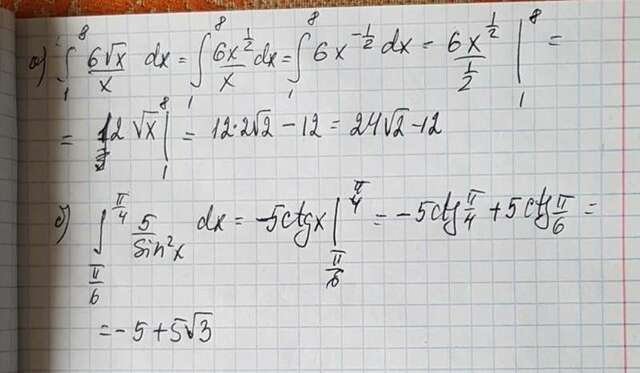 а) ∫₁⁸ 6√x/x dx = ∫₁⁸ 6x^(1/2)/x dx = ∫₁⁸ 6x^(-1/2) dx = 6x^(1/2)/(1/2) |₁⁸ =
= 12√x |₁⁸ = 12·2√2 − 12 = 24√2 − 12
б) ∫_(π/6)^(π/4) 5/sin²x dx = −5ctgx |_(π/6)^(π/4) = −5ctg π/4 + 5ctg π/6 =
= −5 + 5√3